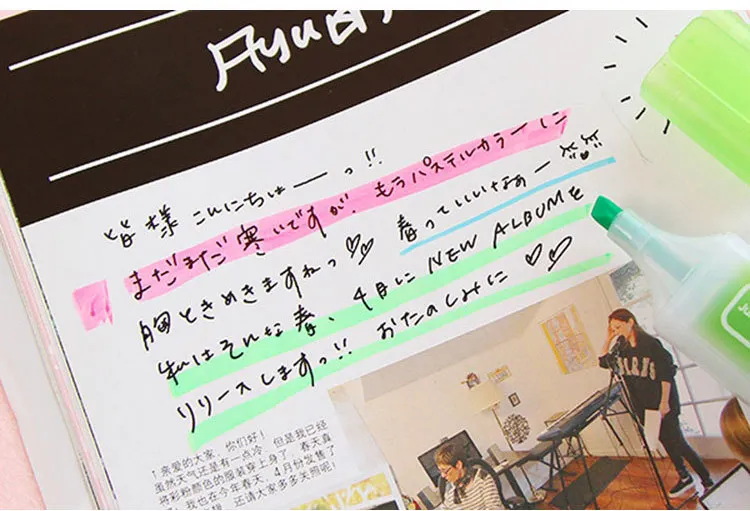 皆様 こんにちはーっ!!
まだまだ寒いですが、もうパステルカラーに
胸ときめきますねっ♡♡ 春っていいなぁー
私はそんな春、4月にNEW ALBUMを
リリースしますっ!! おたのしみに♡♡
亲爱的大家,你们好!
虽然天气还是有一点冷,但是我已经
将彩粉颜色的服装穿上身了,春天真
我也在今年春天,4月份发售了
还请大家多多关照呢!